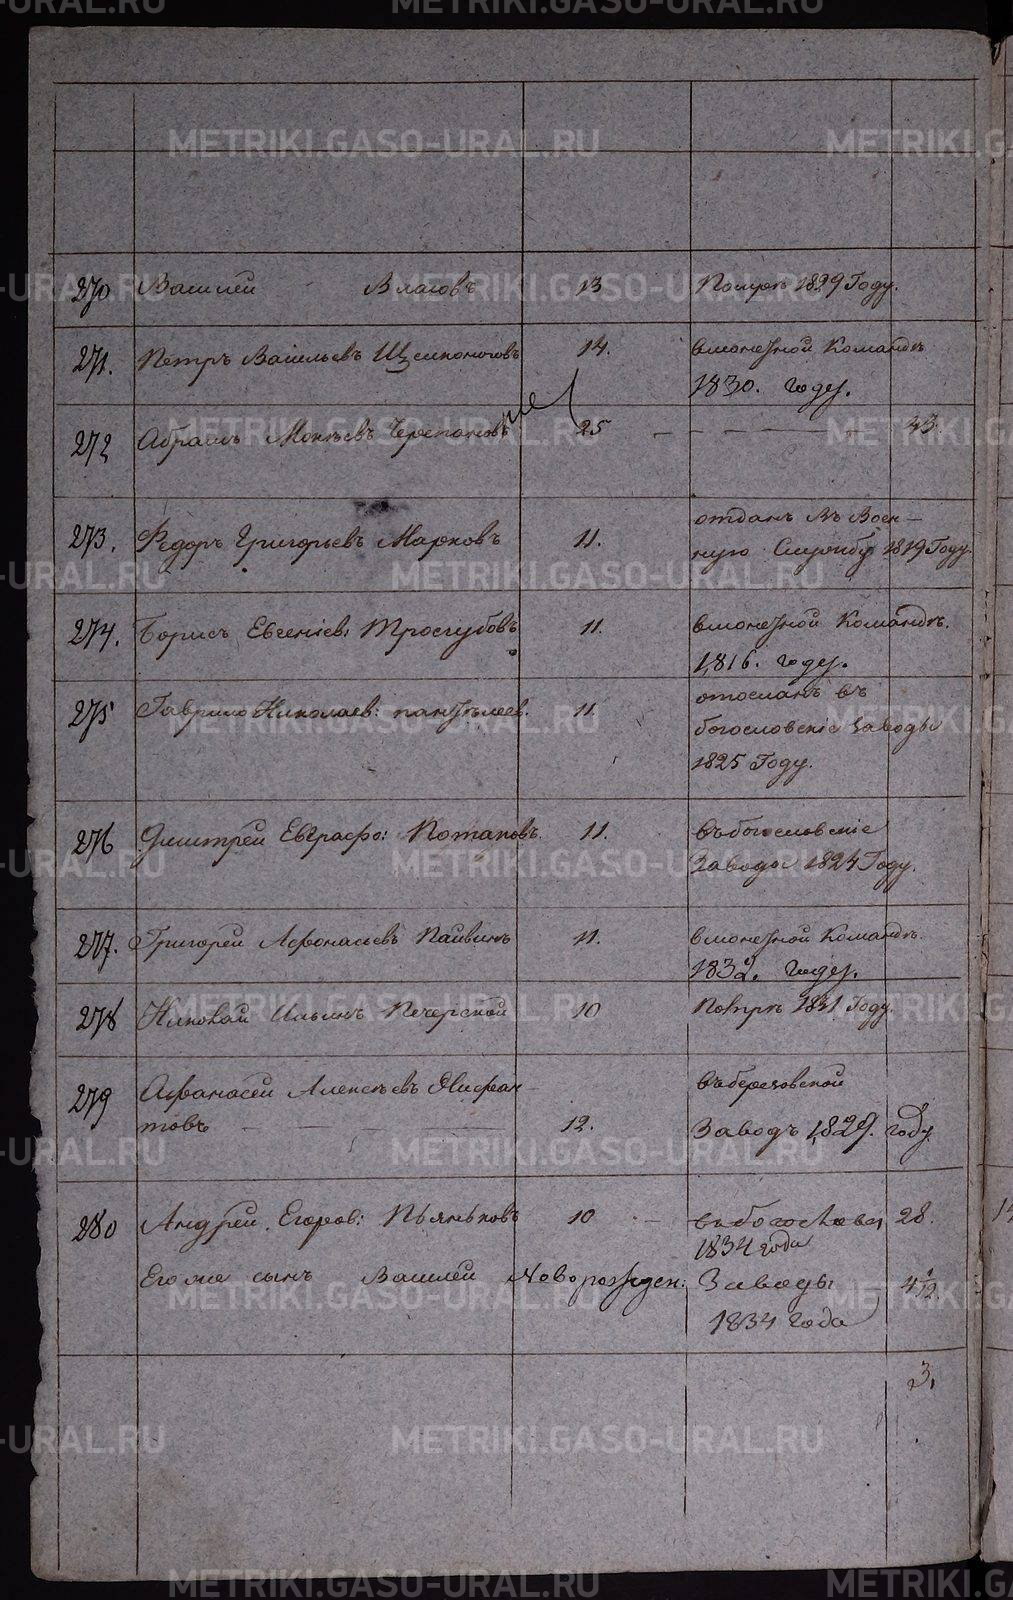 270 Василей Власовъ 13 Помре 1829 Году.
271. Петръ Васильевъ Щелконоговъ 14. въ монетной Командѣ
1830. году.
272 Абрамъ Мокѣевъ Черепановъ 25 — — — — — 43.
273. Федоръ Григорьевъ Марковъ 11. отданъ въ Воен-
ную Службу 1819 Году.
274. Борисъ Евгеніев: Тросгубовъ 11. в монетной Командѣ.
1816. году.
275 Гаврило Николаев: пантѣлеев. 11 отосланъ въ
богословскіе заводы
1825 Году.
276 Дмитрей Евграфо: Потаповъ. 11. въ богословскіе
Заводы 1824 Году.
277. Григорей Афонасьевъ Пайвинъ 11. в монетной Командѣ.
1832. году.
278 Николай Ильинъ Печерской 10 Помре 1821 Году.
279 Афанасей Алексѣевъ Ямфан- въ березовской
товъ — — — — — 12. Заводъ 1829. году.
280 Андрей Егоров: Пьянковъ 10 — въ богословск 28.
1834 года
Его же сынъ Василей Новорожден: Заводы 4/12
1834 года
3.
METRIKI.GASO-URAL.RU